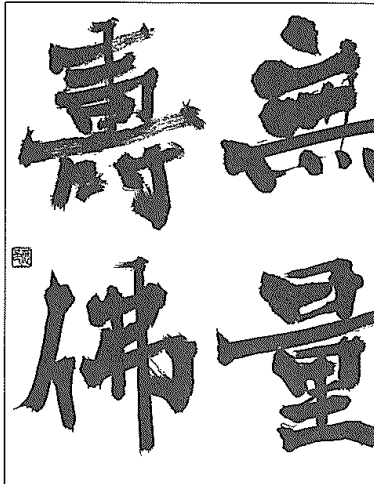 無量
壽佛